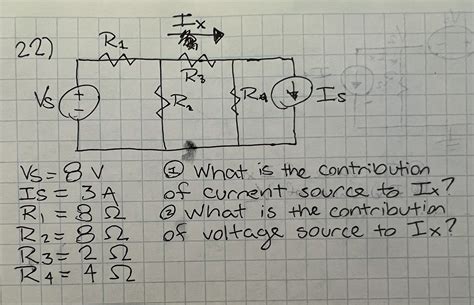 22)
Ix
R1
R3
Vs
R2
R4
Is
Vs = 8 V
Is = 3 A
R1 = 8 Ω
R2 = 8 Ω
R3 = 2 Ω
R4 = 4 Ω
① What is the contribution
of current source to Ix?
② What is the contribution
of voltage source to Ix?